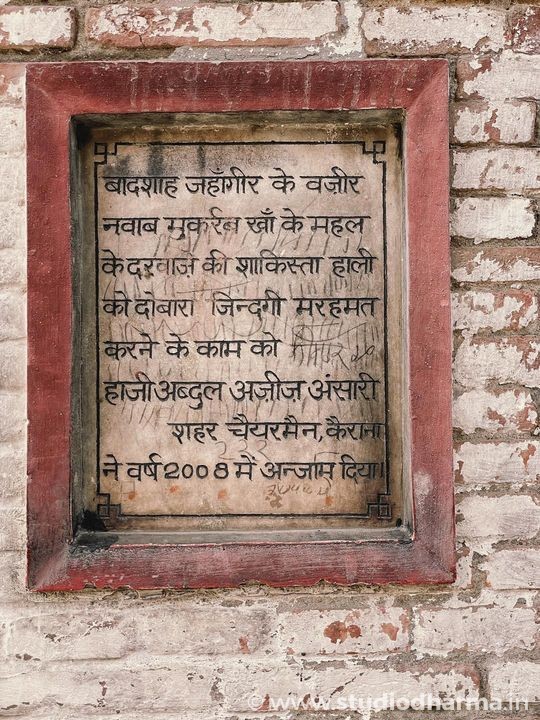 बादशाह जहाँगीर के वज़ीर
नवाब मुकर्रब खाँ के महल
के दरवाजे की शाकिस्ता हाली
को दोबारा जिन्दगी मरहमत
करने के काम को
हाजी अब्दुल अज़ीज़ अंसारी
शहर चैयरमैन, कैराना
ने वर्ष 2008 में अन्जाम दिया।
© www.studiodharma.in